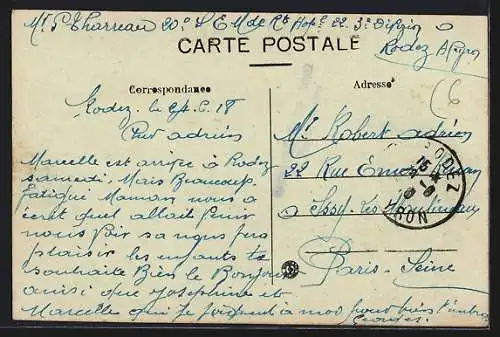 Mr P. Tharreau 20e S E M de Rte Hopl 22. 3e Division
Rodez Aveyron
CARTE POSTALE
Correspondance
Adresse
Rodez. le
Cher adrien
Marcelle est arrivée à Rodez
samedi. Mais Beaucoup
fatiguée Maman nous a
écrit quel allait
nous voir sa nous fera
plaisir les enfants te
souhaite Bien le Bonjour
ainsi que Josephine et
Marcelle qui se joignent a moi pour bien t'embrasser
Georges
Mr Robert adrien
22 Rue
Issy-les-Moulineaux
Paris. Seine
RODEZ
(6